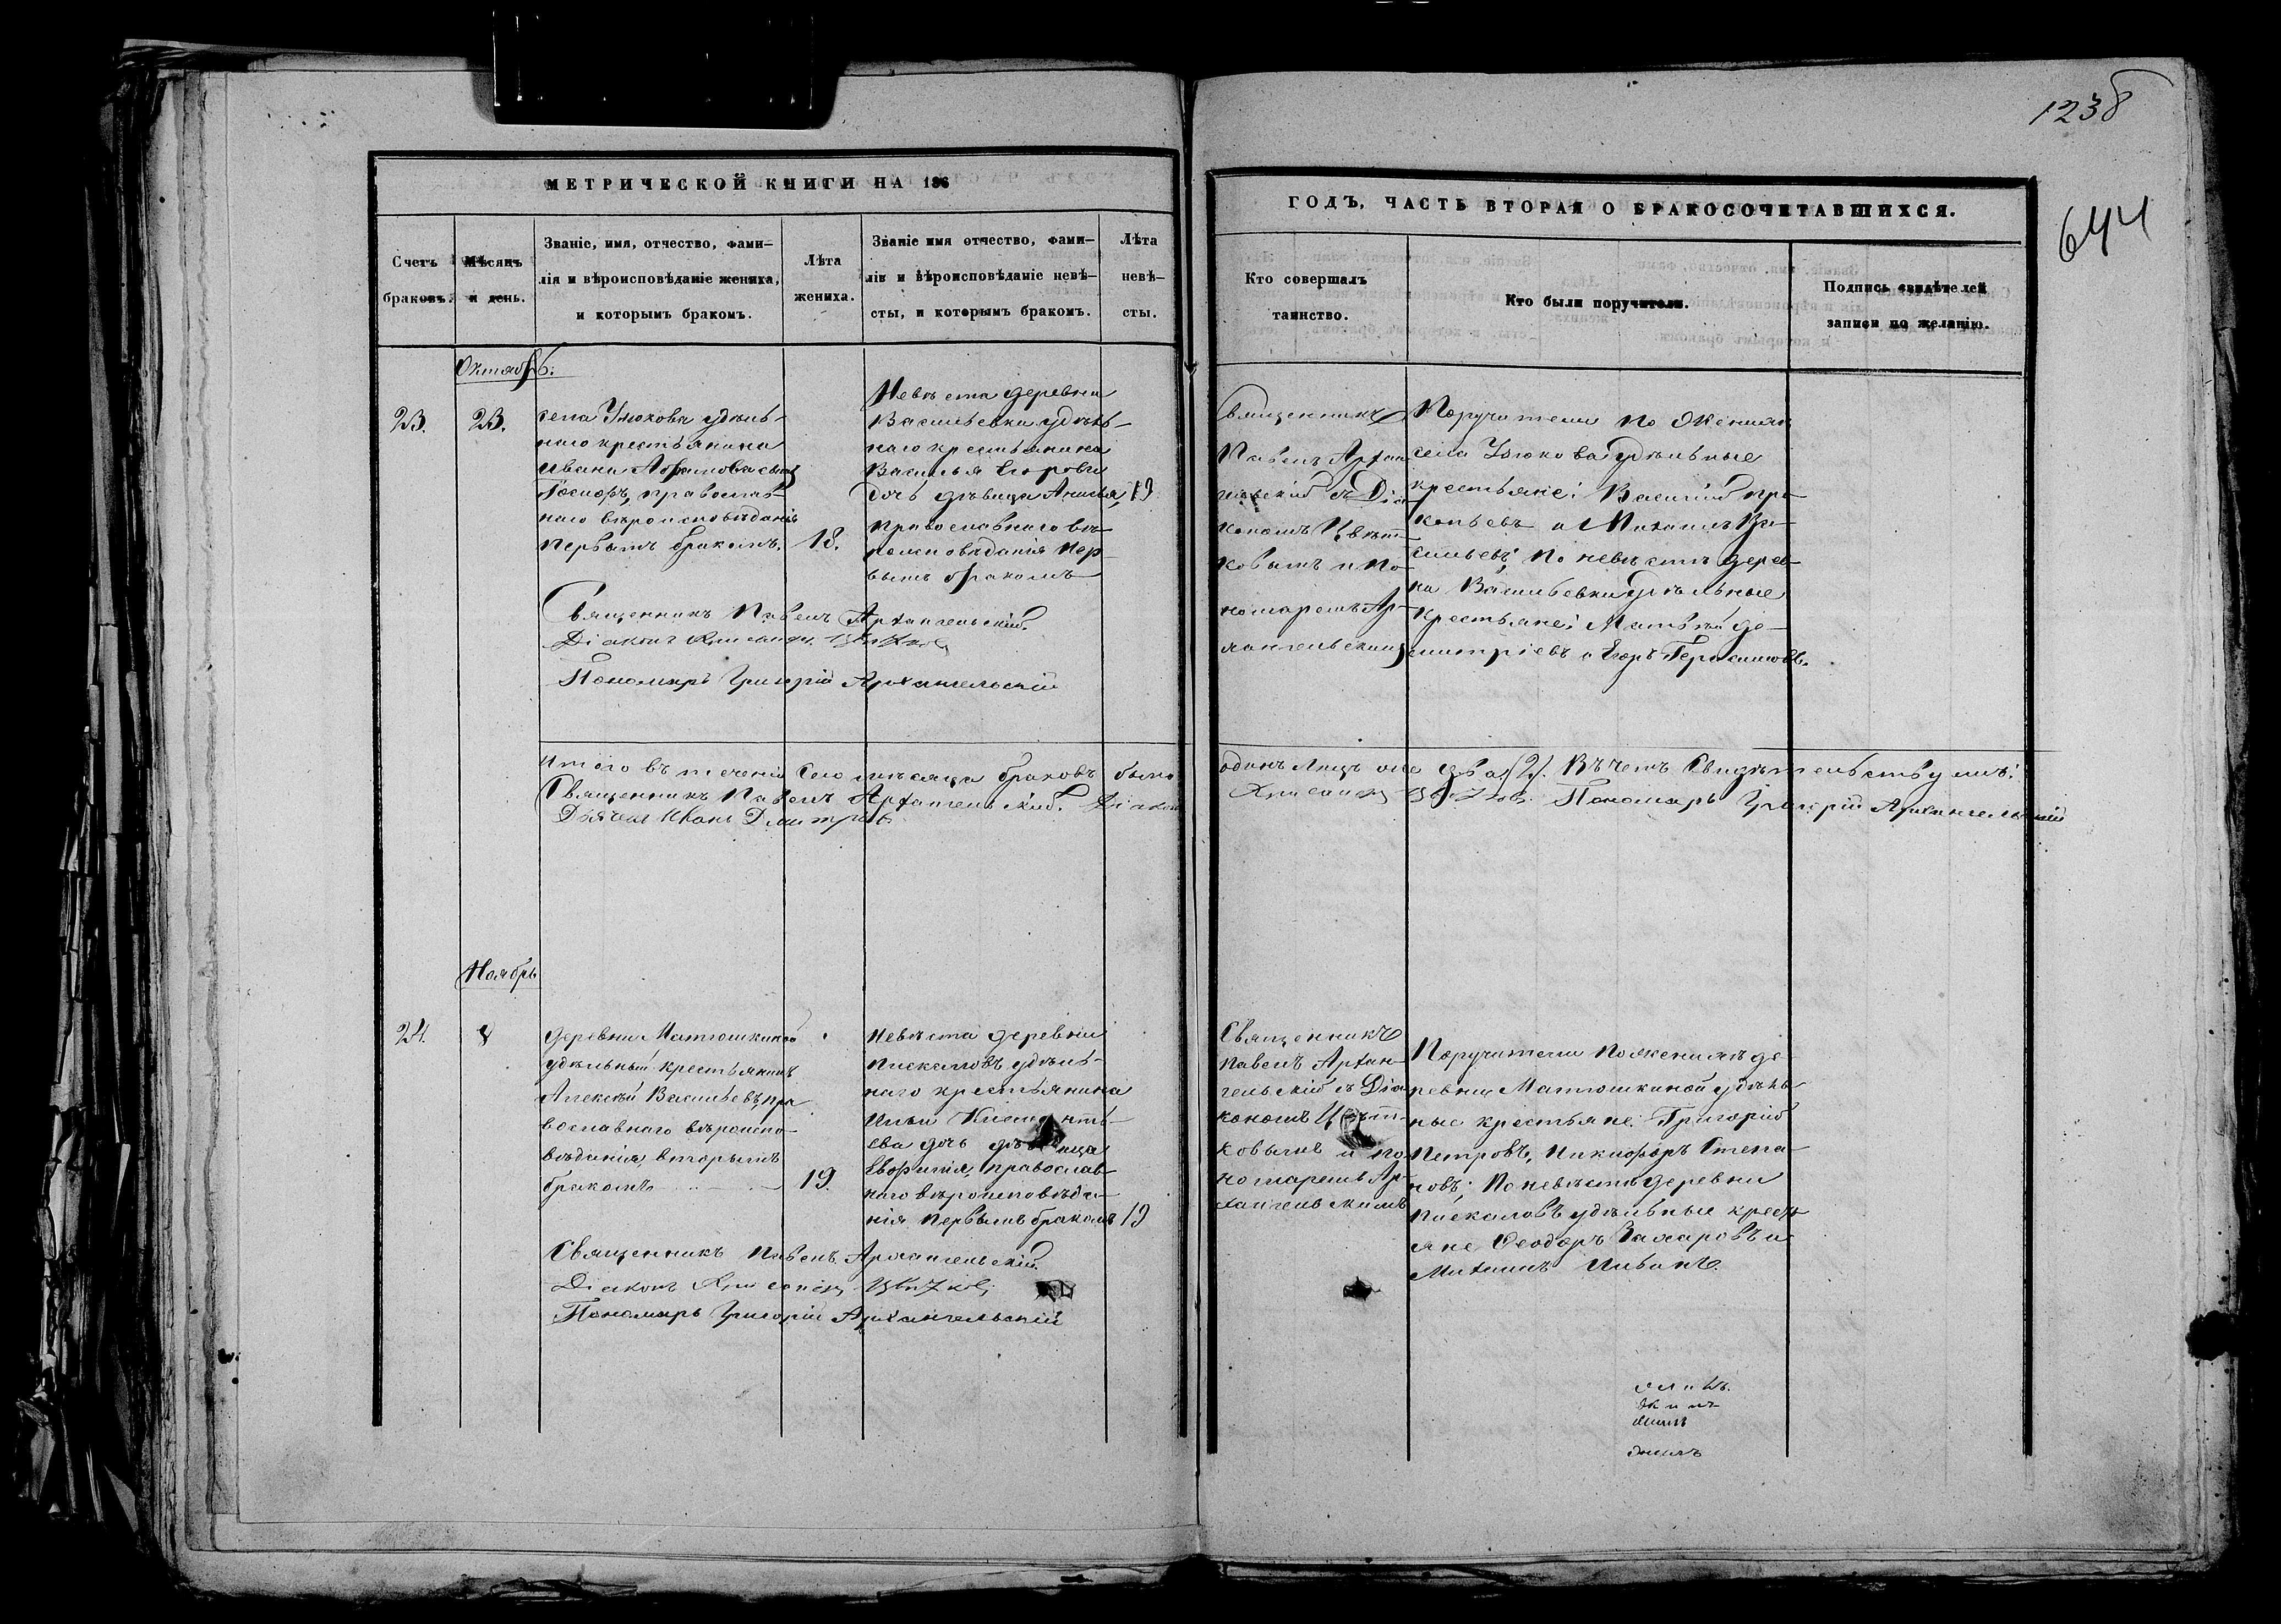 1238
644
МЕТРИЧЕСКОЙ КНИГИ НА 186
Счетъ
браковъ.
Мѣсяцъ
и день.
Званіе, имя, отчество, фами-
лія и вѣроисповѣданіе жениха,
и которымъ бракомъ.
Лѣта
жениха.
Званіе имя отчество, фами-
лія и вѣроисповѣданіе невѣ-
сты, и которымъ бракомъ.
Лѣта
невѣ-
сты.
ГОДЪ, ЧАСТЬ ВТОРАЯ О БРАКОСОЧЕТАВШИХСЯ.
Кто совершалъ
таинство.
Кто были поручители.
Подпись свидѣтелей
записи по желанію.
Октябрь
23.
23.
села удѣль-
наго крестьянина
Ивана сынъ
православ-
наго вѣроисповѣданія
первымъ бракомъ.
18.
Невѣста деревни
Васильевки удѣль-
наго крестьянина
Василья Егорова
дочь дѣвица
православнаго вѣ-
роисповѣданія пер-
вымъ бракомъ
19
Священникъ
Павелъ Архан
гельскій съ Діа
кономъ Цвѣт-
ковымъ и по-
номаремъ Ар-
хангельскимъ
Поручители по женихѣ
села удѣльные
крестьяне: Василій Про-
копьевъ и Михаилъ Ва-
сильевъ; по невѣстѣ дерев-
ни Васильевки удѣльные
крестьяне: Матвѣй Ди-
митріевъ и Егоръ Герасимовъ.
Священникъ Павелъ Архангельскій.
Діаконъ Цвѣтковъ
Пономарь Григорій Архангельскій
Итого въ теченіи сего мѣсяца браковъ было
одинъ лицъ два (2). Въ чемъ свидѣтельствуемъ:
Священникъ Павелъ Архангельскій. Діаконъ
Цвѣтковъ. Пономарь Григорій Архангельскій
Дьячекъ Иванъ Дмитріевъ
Ноябрь
24.
8
деревни Матюшкиной
удѣльный крестьянинъ
Алексѣй Васильевъ, пра
вославнаго вѣроиспо-
вѣданія, вторымъ
бракомъ
19.
Невѣста деревни
Пискаловъ удѣль-
наго крестьянина
Ильи
ева дочь дѣвица
Евфимія, православ-
наго вѣроисповѣда-
нія первымъ бракомъ
19
Священникъ
Павелъ Архан-
гельскій съ Діа
кономъ Цвѣт-
ковымъ и по
номаремъ Ар-
хангельскимъ
Поручители по женихѣ де-
ревни Матюшкиной удѣль-
ные крестьяне: Григорій
Петровъ, Никифоръ Степа-
новъ; по невѣстѣ деревни
Пискаловъ удѣльные кресть
яне Ѳеодоръ Захаровъ и
Михаилъ
Священникъ Павелъ Архангельскій
Діаконъ Цвѣтковъ
Пономарь Григорій Архангельскій